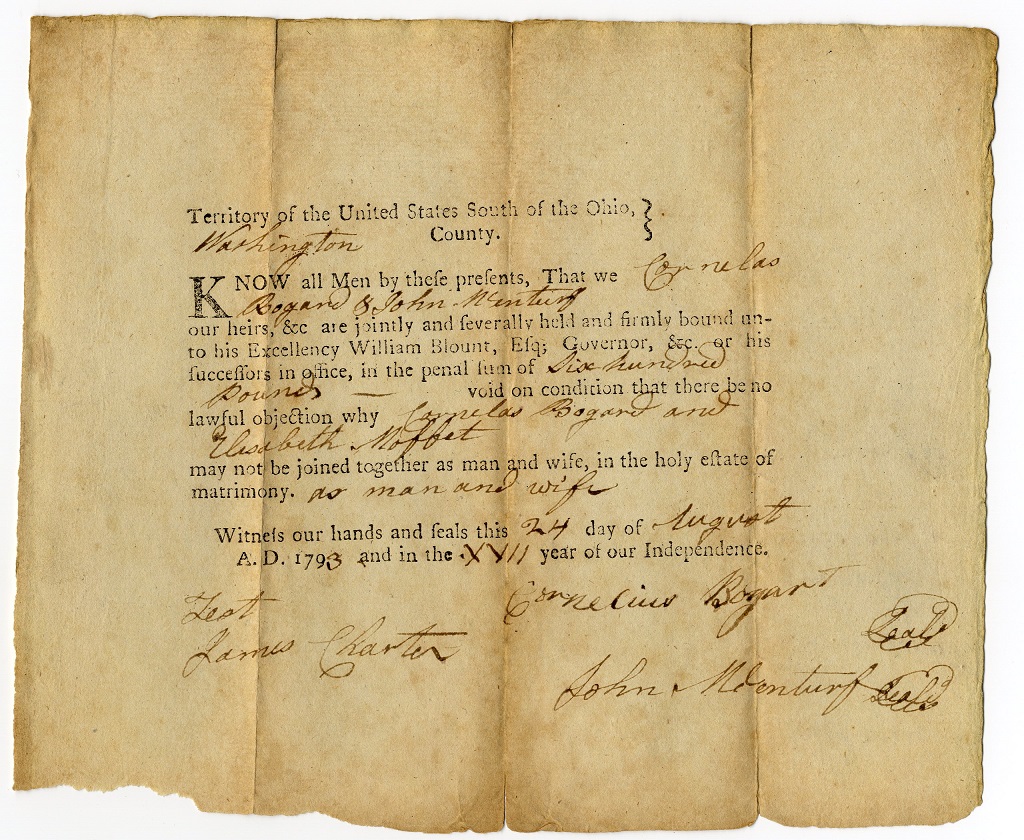 Territory of the United States South of the Ohio, }
Washington County.
KNOW all Men by theſe preſents, That we Cornelas
Bogard & John McEnturf
our heirs, &c are jointly and ſeverally held and firmly bound un-
to his Excellency William Blount, Eſq; Governor, &c. or his
ſucceſſors in office, in the penal ſum of Six hundred
Pounds — void on condition that there be no
lawful objection why Cornelas Bogard and
Elisabeth Moffet
may not be joined together as man and wife, in the holy eſtate of
matrimony. as man and wife
Witneſs our hands and ſeals this 24 day of August
A. D. 1793 and in the XVII year of our Independence.
Test
Cornelius Bogart Seal
James Charter
John McEnturf Seal